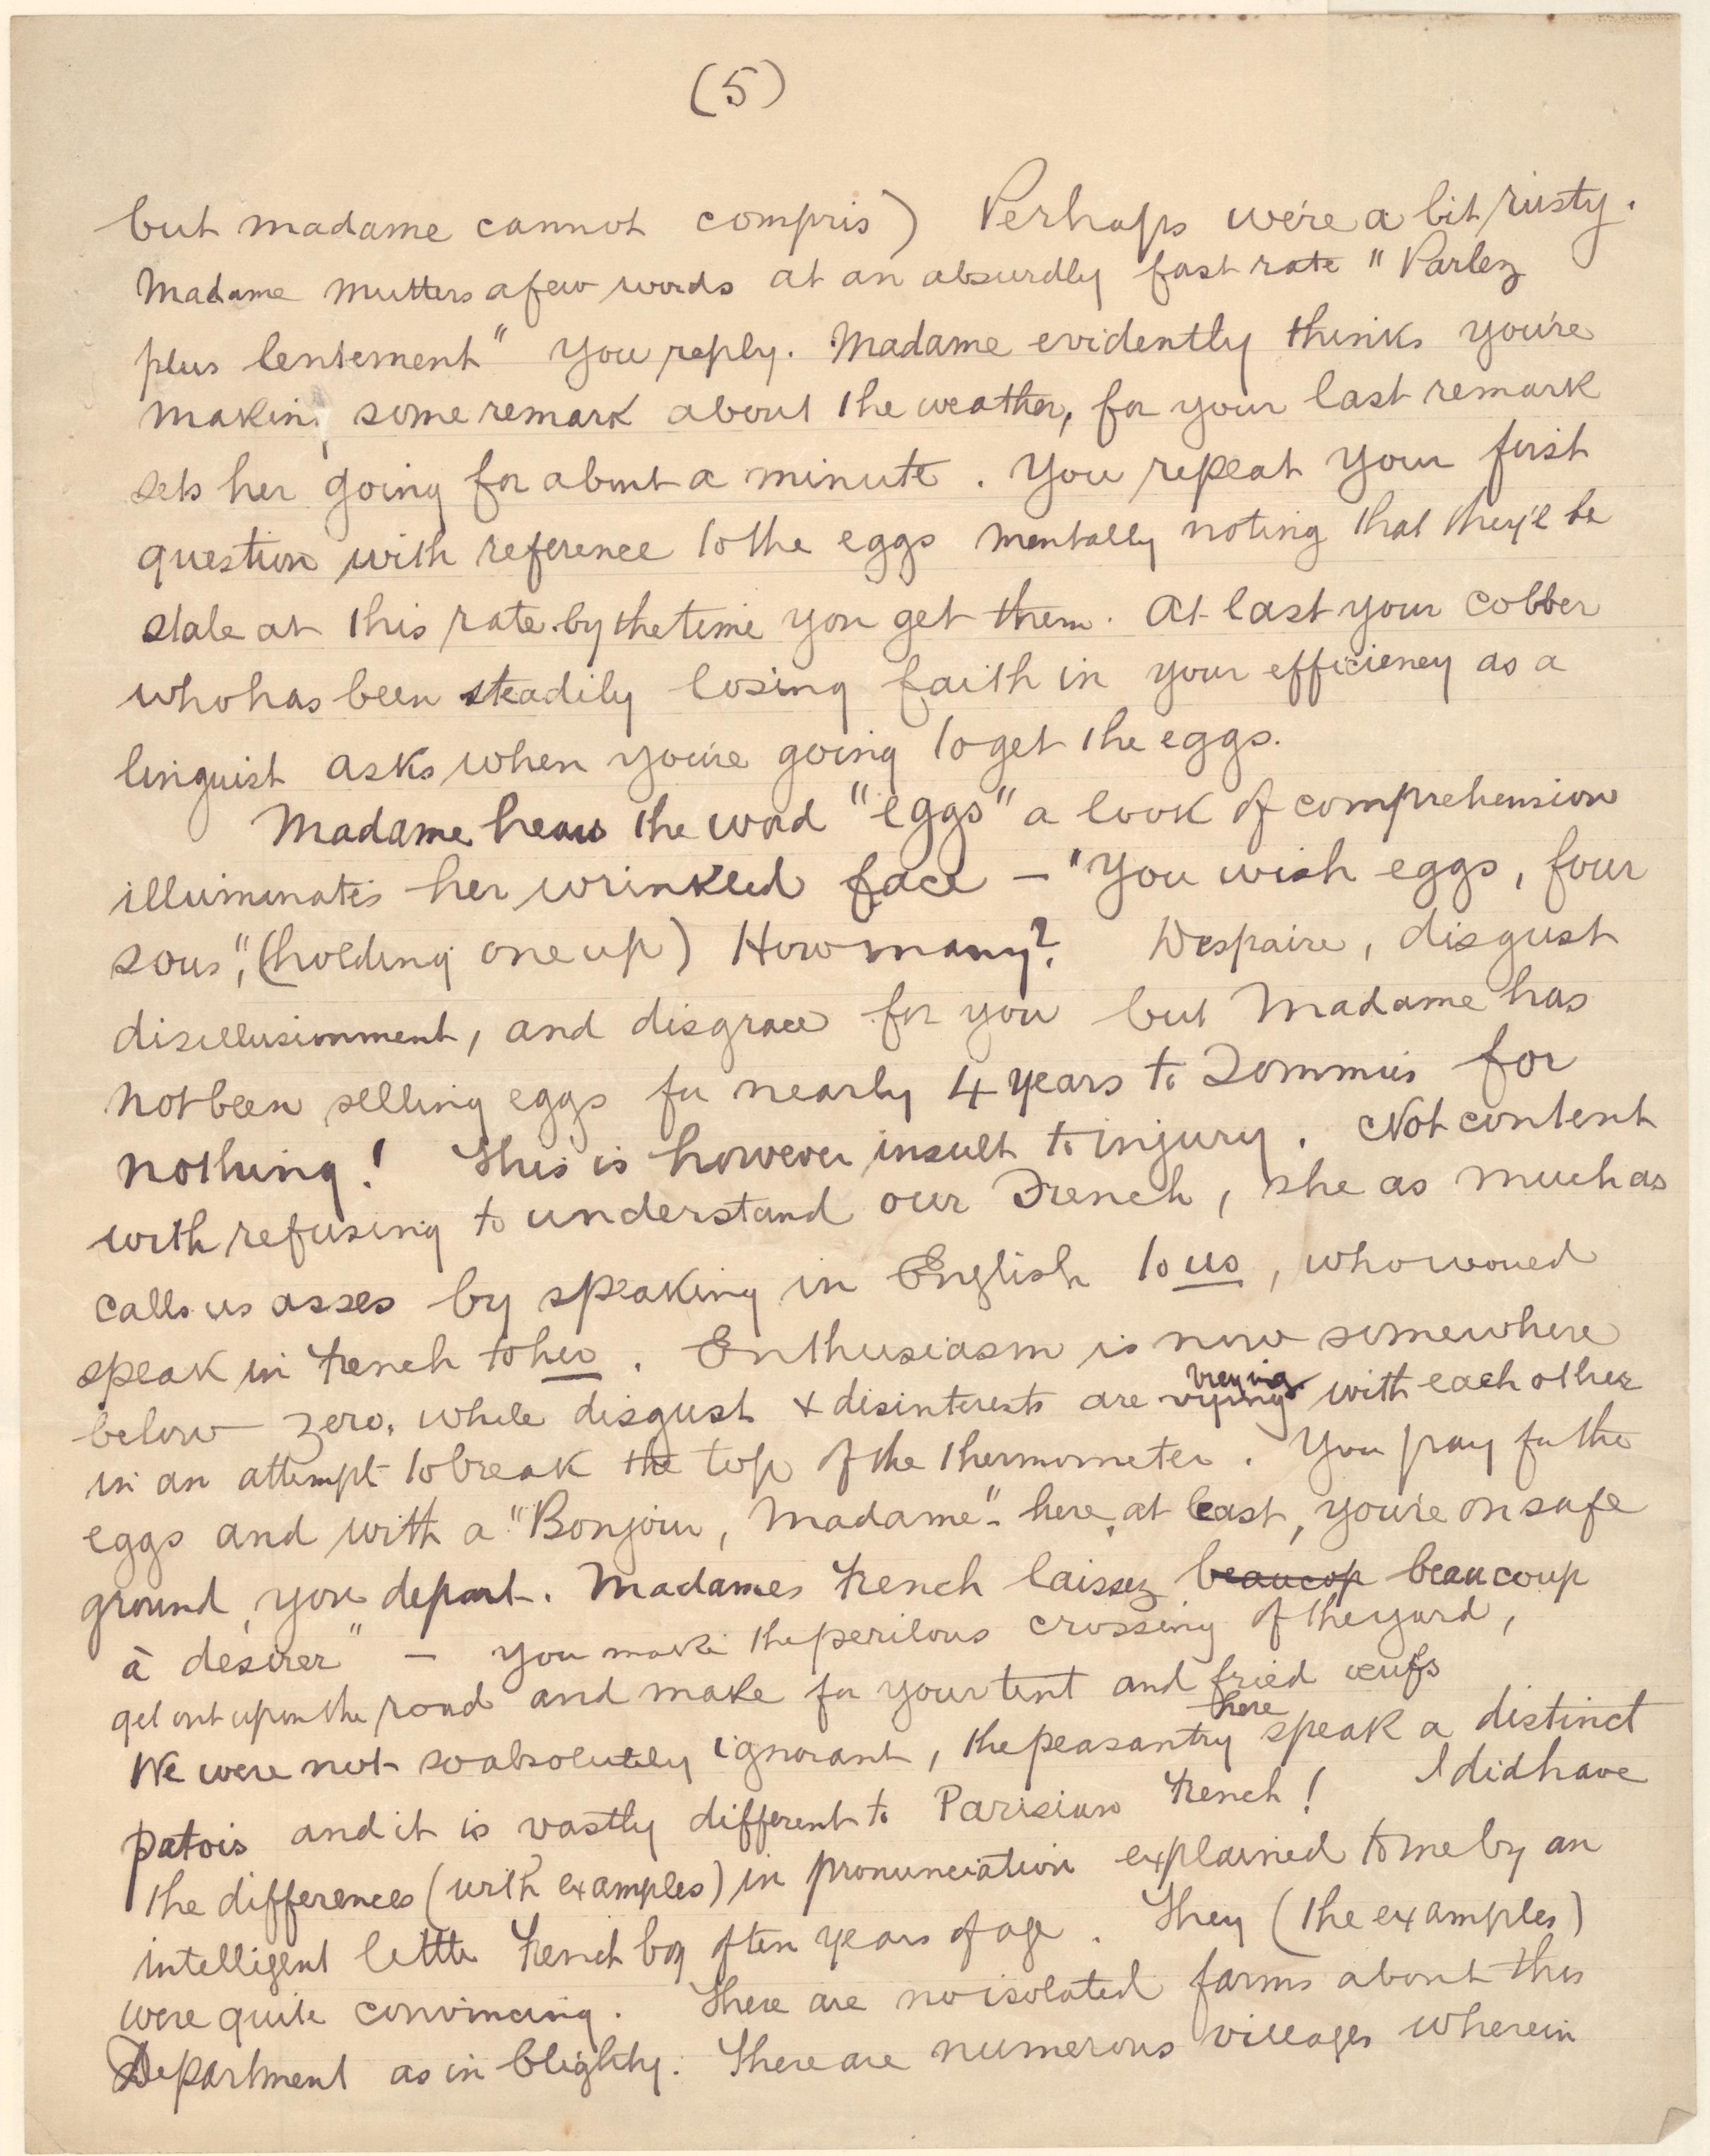 (5)
but madame cannot compris) Perhaps we're a bit rusty.
Madame mutters a few words at an absurdly fast rate "Parlez
plus lentement" you reply. Madame evidently thinks you're
making some remark about the weather, for your last remark
sets her going for about a minute. You repeat your first
question with reference to the eggs mentally noting that they'll be
stale at this rate by the time you get them. At last your cobber
who has been steadily losing faith in your efficiency as a
linguist asks when you're going to get the eggs.
Madame hears the word "eggs" a look of comprehension
illuminates her wrinkled face — "You wish eggs, four
sous", (holding one up) How many? Despaire, disgust
disillusionment, and disgrace for you but Madame has
not been selling eggs for nearly 4 years to Tommies for
nothing! This is however insult to injury. Not content
with refusing to understand our French, she as much as
calls us asses by speaking in English to us, who woued
speak in French to her. Enthusiasm is now somewhere
below zero, while disgust & disinterests are vying vieying with each other
in an attempt to break the top of the thermometer. You pay for the
eggs and with a "Bonjour, Madame" - here, at least, you're on safe
ground, you depart. Madames French laissez beaucop beaucoup
à desirer" — you make the perilous crossing of the yard,
get out upon the road and make for your tent and fried oeufs
We were not so absolutely ignorant, the peasantry here speak a distinct
patois and it is vastly different to Parisian French! I did have
the differences (with examples) in pronunciation explained to me by an
intelligent little French boy of ten years of age. They (the examples)
were quite convincing. There are no isolated farms about this
Department as in blighty. There are numerous villages wherein